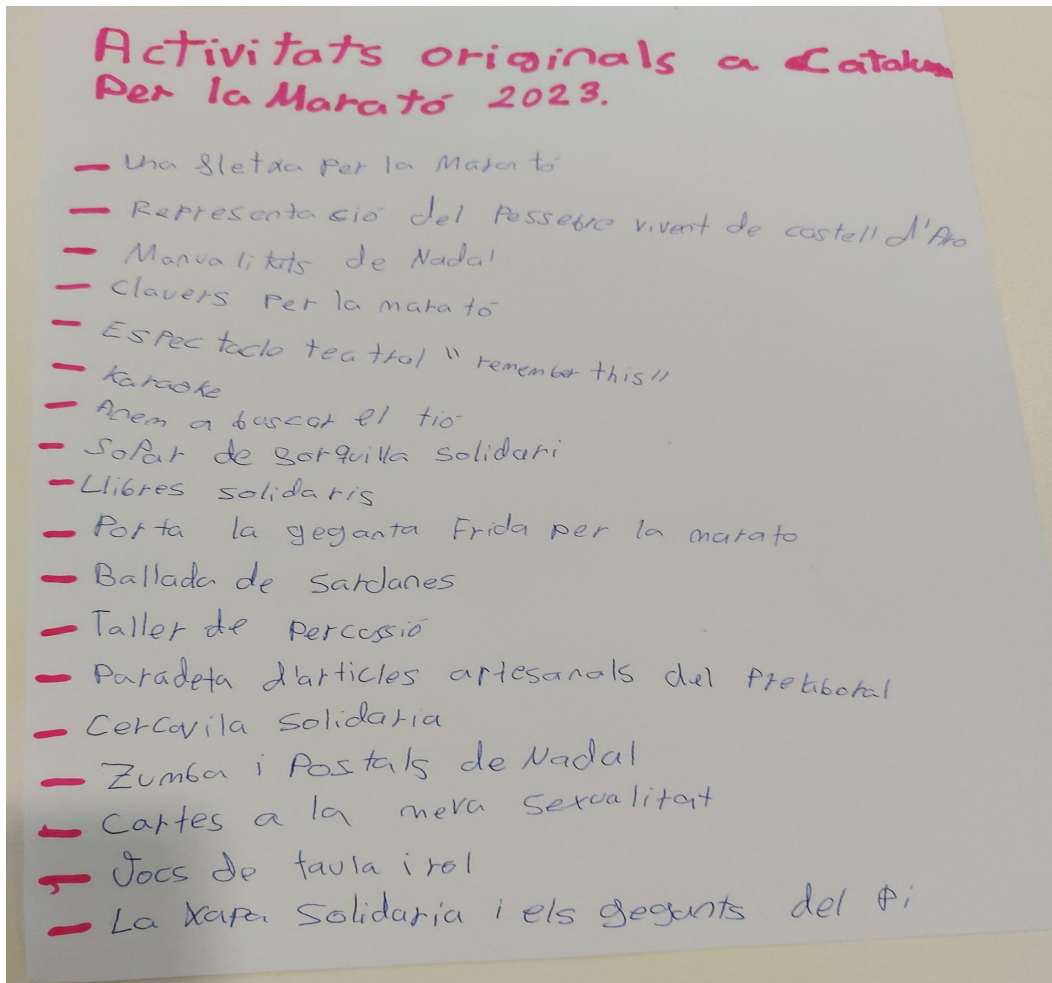 Activitats originals a Catalun
Per la Marató 2023.
- Una fletxa Per la Marató
- Representa ció del Pessebre vivent de castell d'Aro
- Manualitats de Nadal
- Clavers Per la marató
- Espectacle teatral "remember this"
- Karaoke
- Anem a buscar el tió
- Sopar de carquilla solidari
- Llibres solidaris
- Porta la geganta Frida per la marato
- Ballada de Sardanes
- Taller de Percussió
- Paradeta d'articles artesanals del Prelaboral
- Cercavila Solidaria
- Zumba i Postals de Nadal
- Cartes a la meva Sexualitat
- Jocs de taula i rol
- La Xapa Solidaria i els gegants del Pi